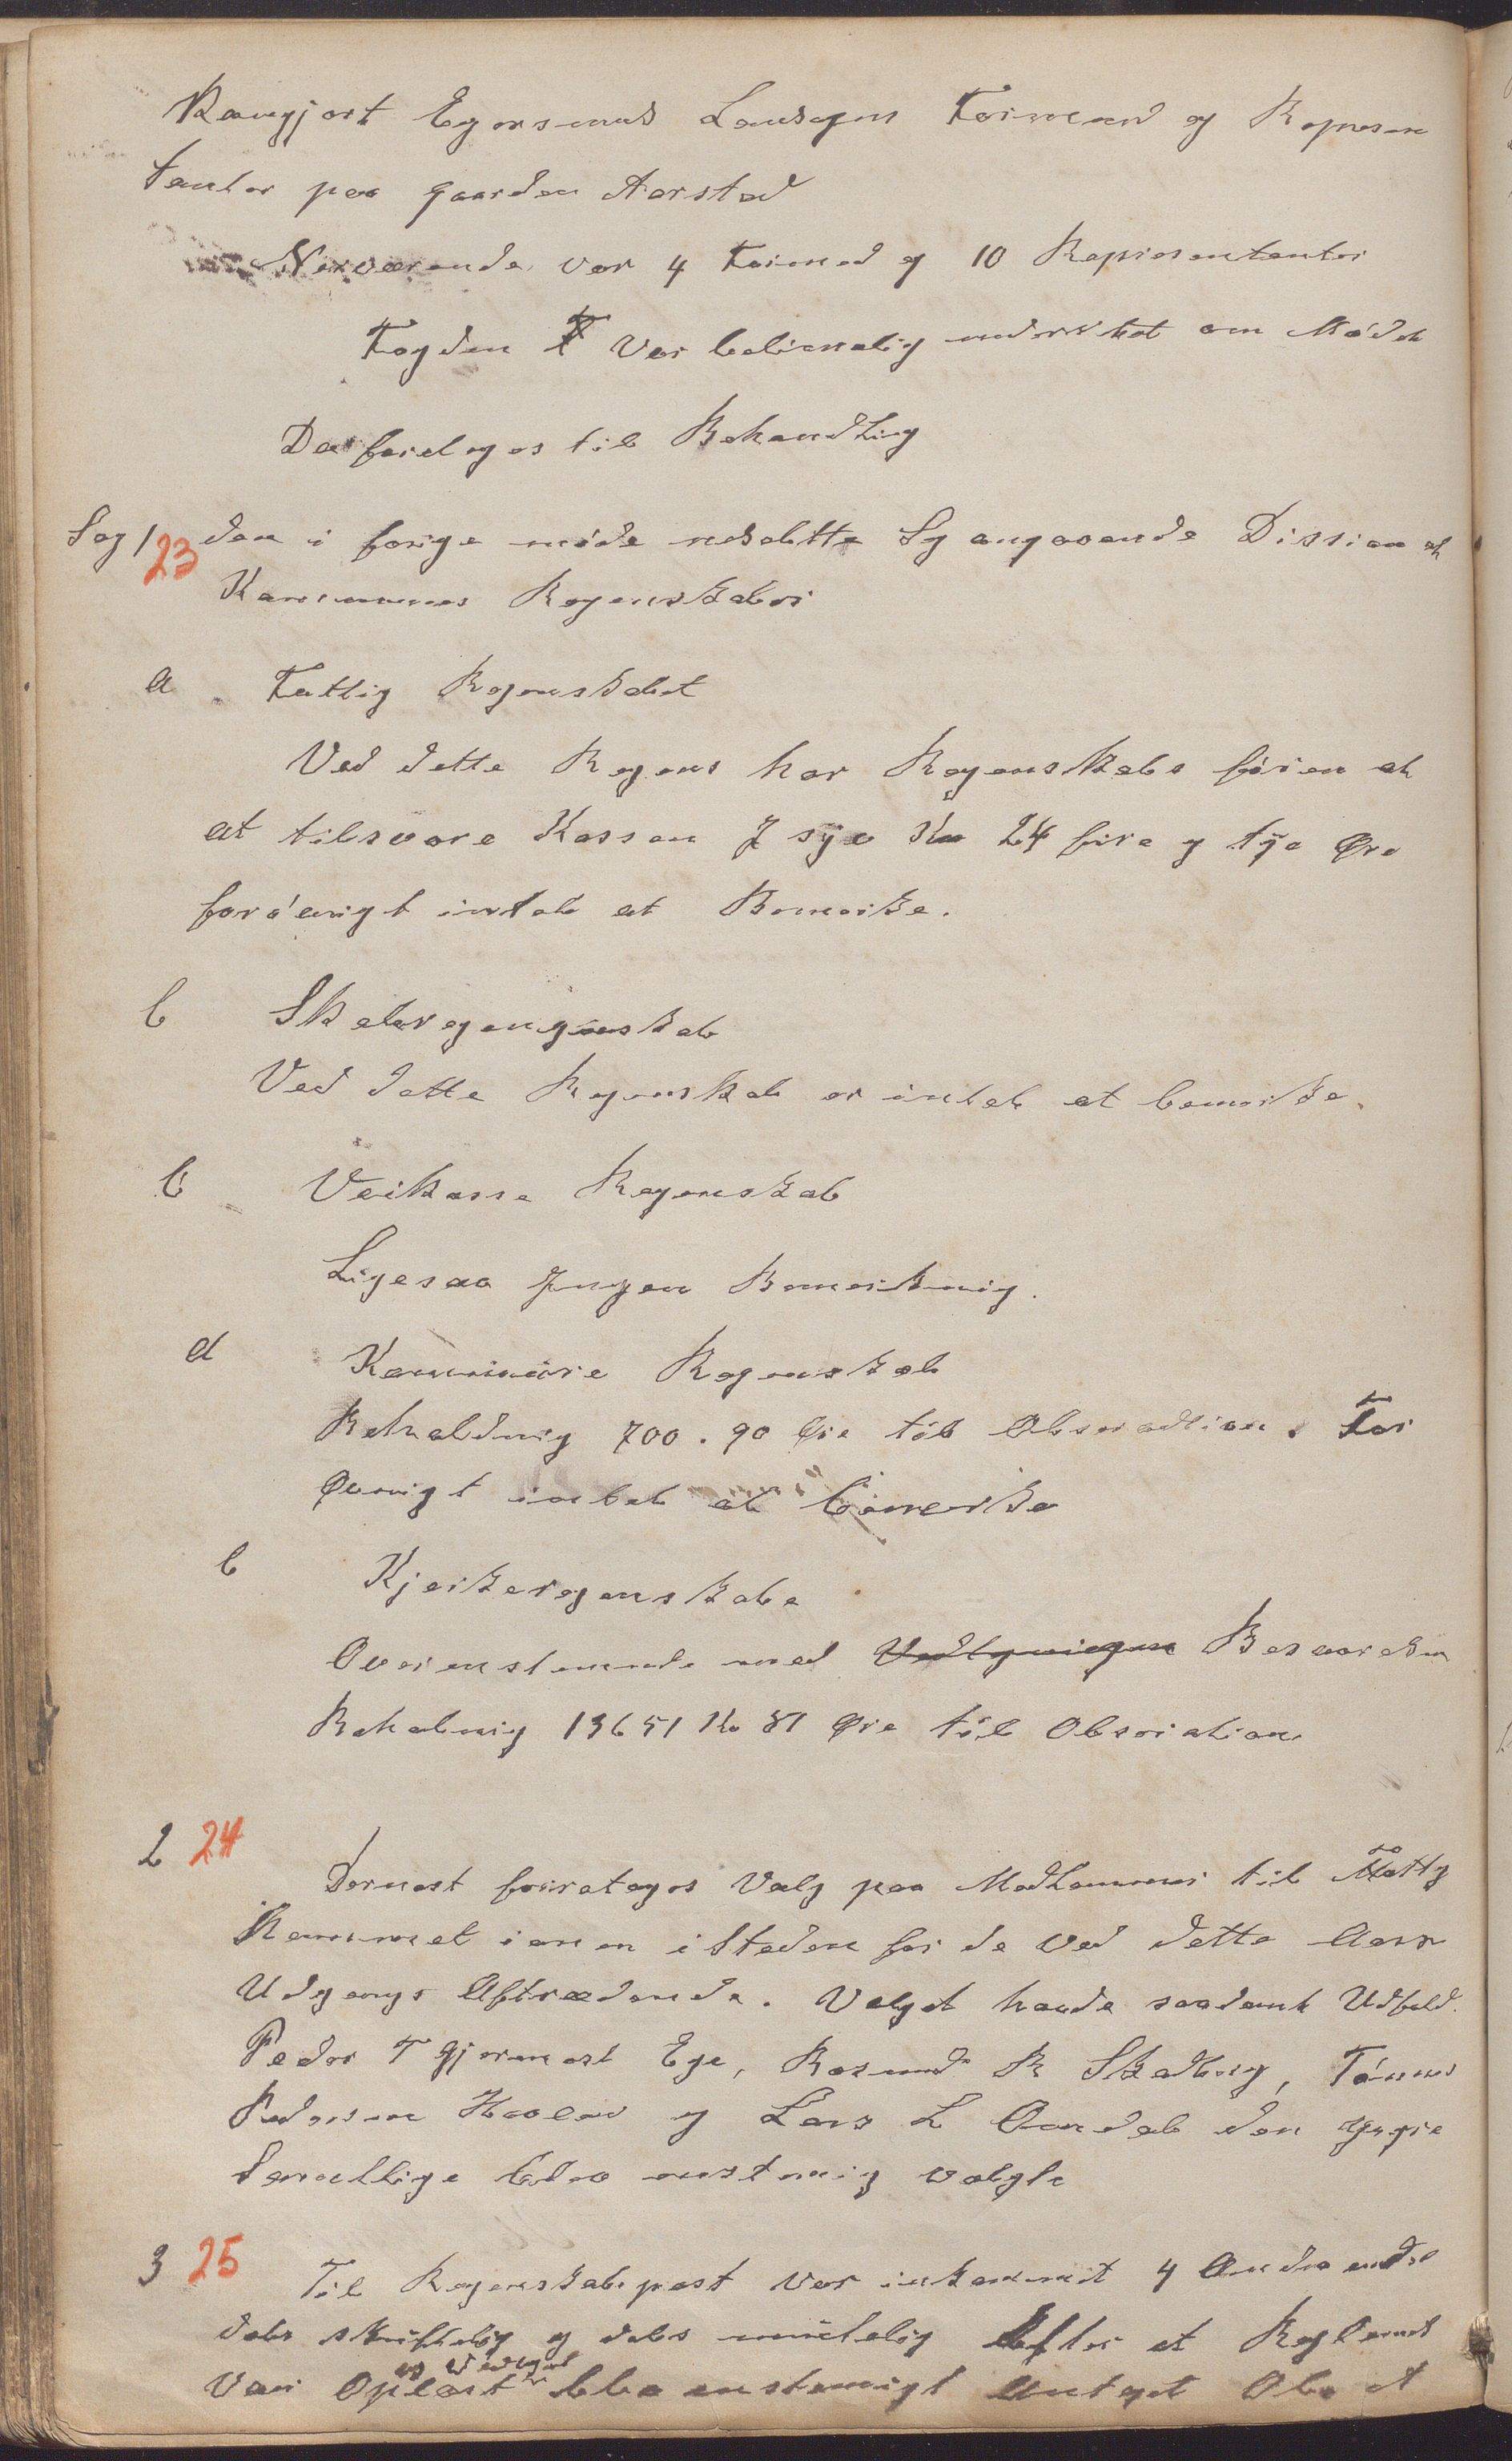 Rangjort Egersunds Landsogns Formend og Represen
tanter paa gaarden Aarstad
Nerværende var 4 Formed og 10 Representanter
Fogden var betimelig underrettet om Mødet
Da foretoges til Behandling
Sag 1 23 den i forige møde udsatte Sg angaaende Dission at
Kommunes Regenskaber
a Fattig Regenskabet
Ved dette Regens har Regenskabs føren at
at tilsvare Kassen 7 syv Kr 24 fire og tye Øre
forøvrigt intet at Bemerke.
b Skoleregenskab
Ved dette Regenskab er intet at bemerke.
c Veikasse Regenskab
Ligesaa Ingen Bemerkning.
d Kommune Regenskab
Beholdning 700.90 Øre til Observation. For
Øvrigt intet at bemerke
e Kjerkeregenskabe
Overenstemende med Besvarelsen
Beholning 13651 Kr 81 Øre til Observation
2 24 Dernest foretoges Valg paa Medlemmer til Fattig
Kommisionen i Steden for de ved dette Aars
Udgangs Aftrædende. Valget havde saadant Udfald.
Peder T Gjermest Ege, Rasmus R Skadberg, Tønnes
Pedersen Haaland og Lars L Omdal den
Samtlige blev enstemig valgte
3 25 Til Regenskabspost var inkommet 4 Andragender
dels skriftelig og dels mundtelig Efter at Reglement
og vedtaget
var Oplæst blev enstemmigt Antaget Ole